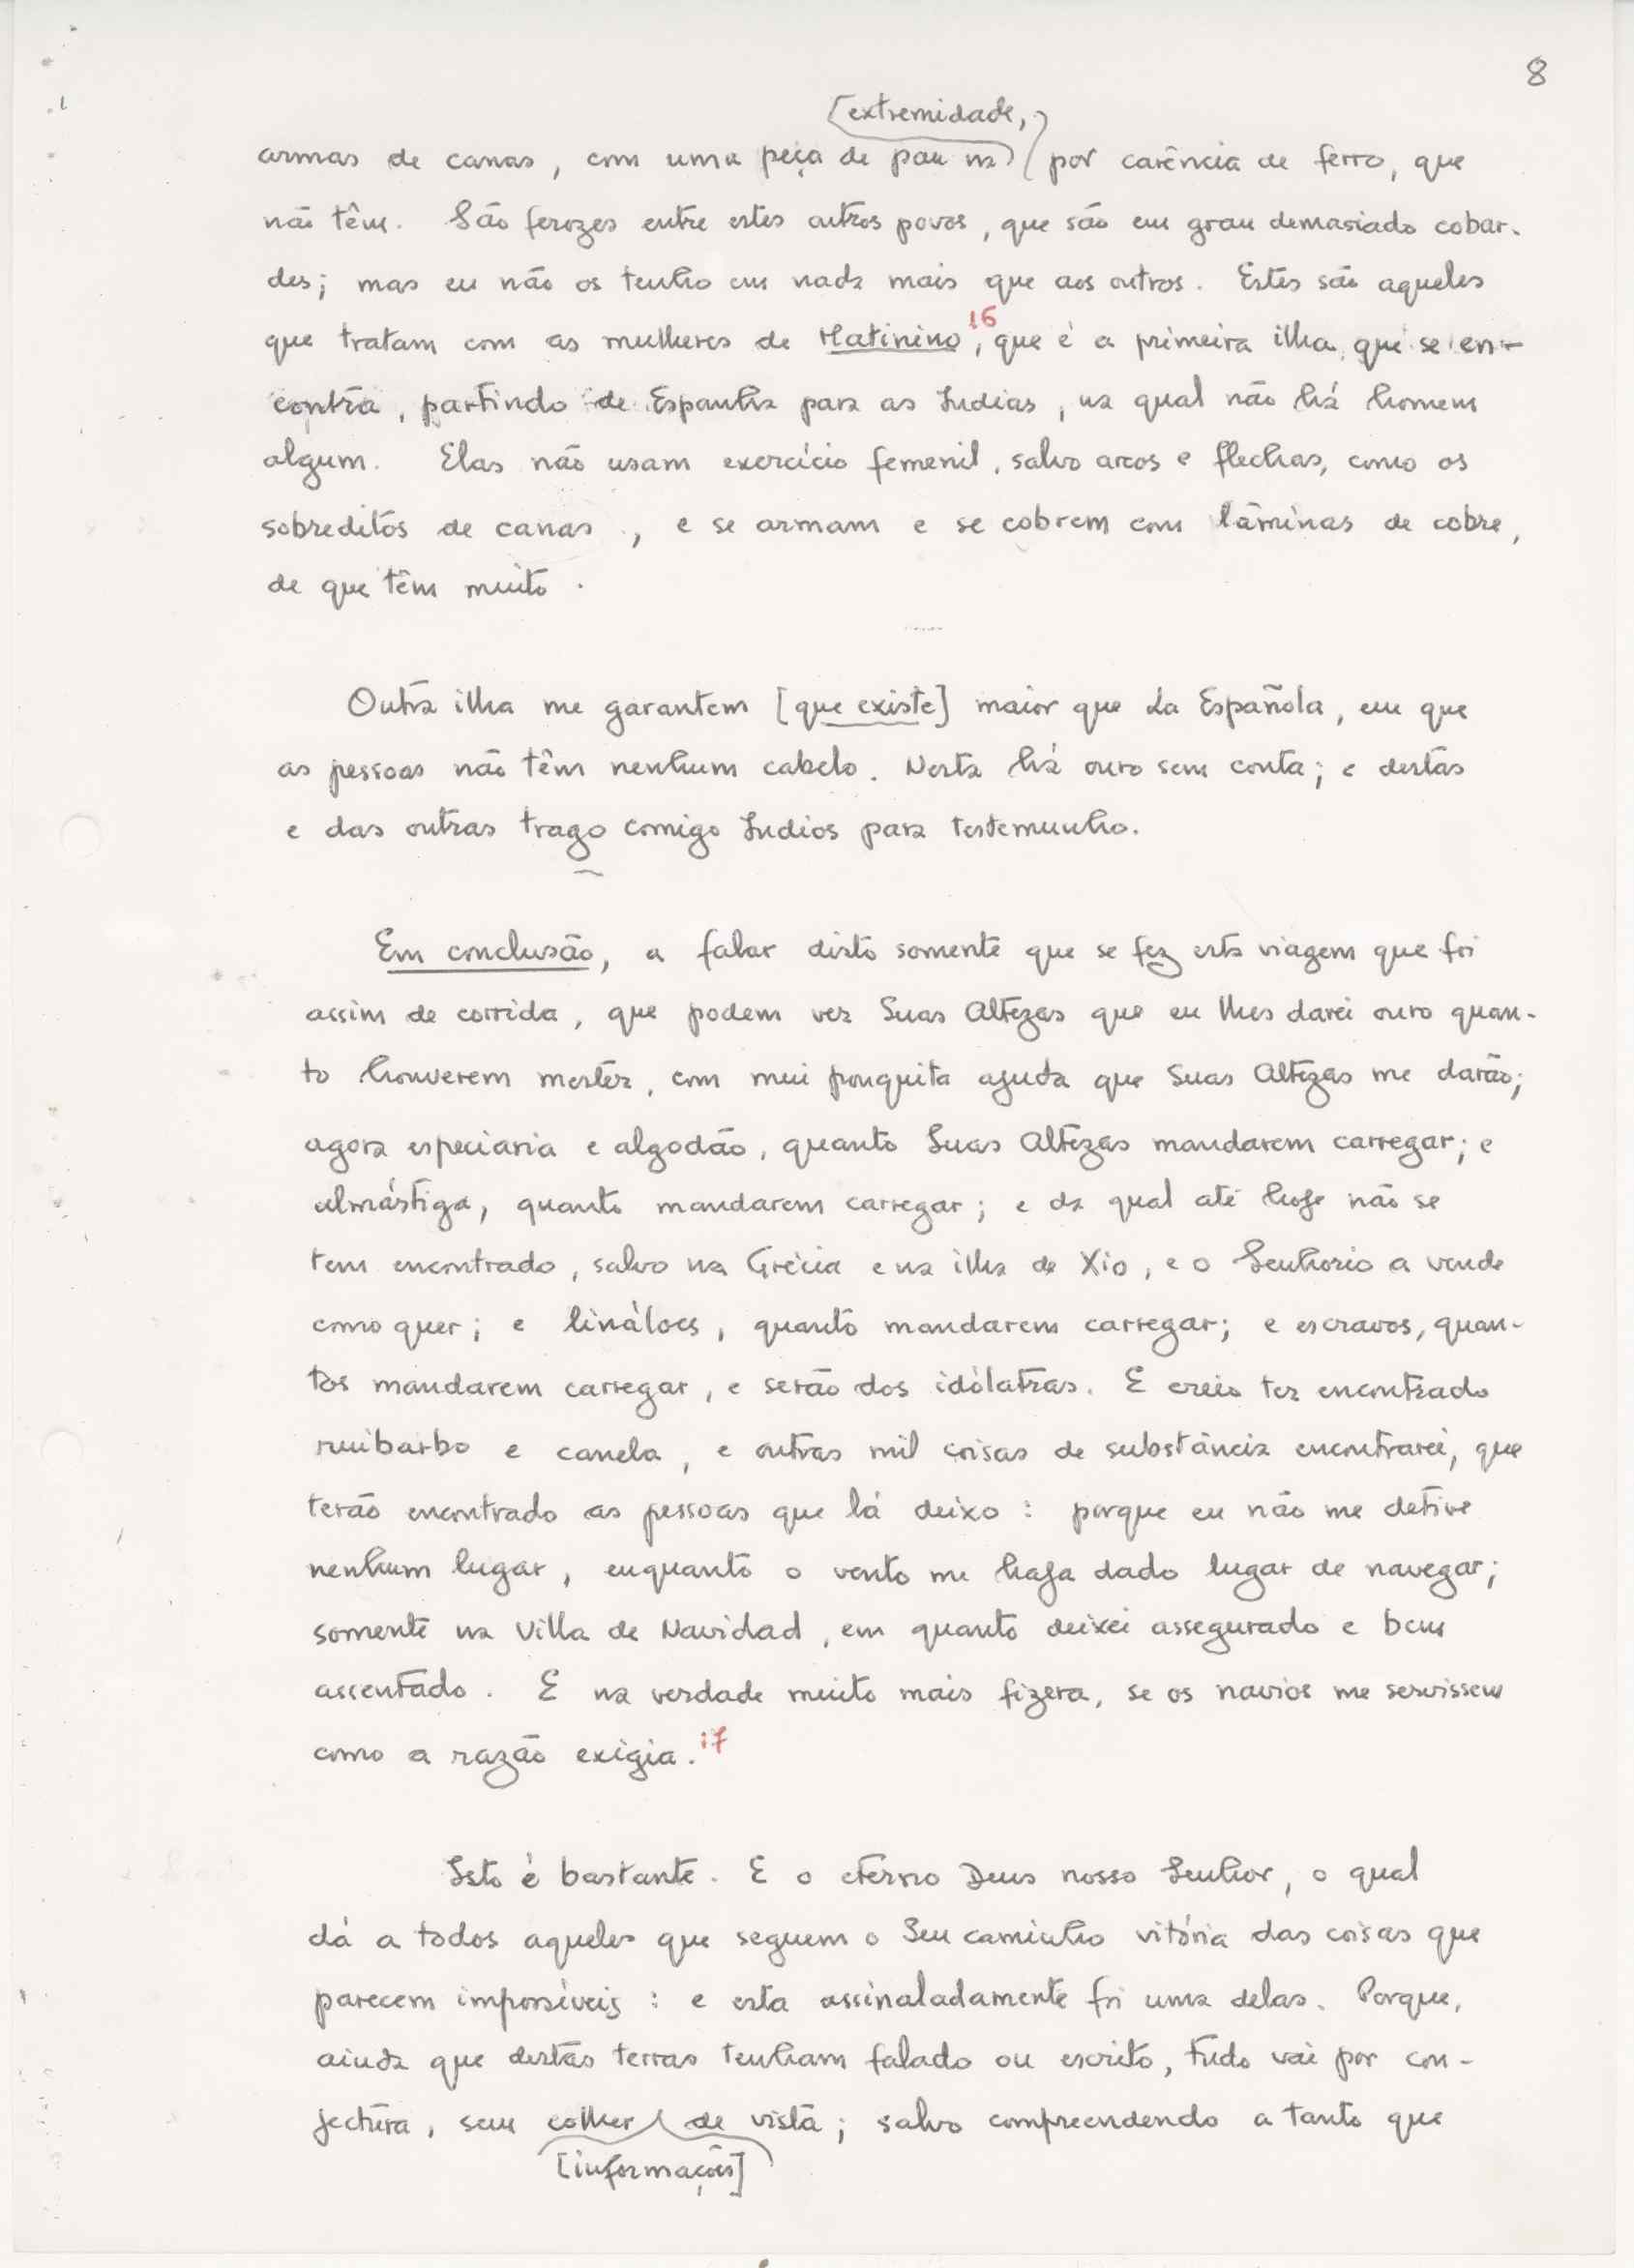 8
[extremidade,
armas de canas, com uma peça de pau na por carência de ferro, que
não têm. São ferozes entre estes outros povos, que são em grau demasiado cobar-
des; mas eu não os tenho em nada mais que aos outros. Estes são aqueles
que tratam com as mulheres de Matinino,16 que é a primeira ilha, que se en-
contra, partindo de Espanha para as Indias, na qual não há homem
algum. Elas não usam exercício femenil, salvo arcos e flechas, como os
sobreditos de canas, e se armam e se cobrem com lâminas de cobre,
de que têm muito.
Outra ilha me garantem [que existe] maior que La Española, em que
as pessoas não têm nenhum cabelo. Nesta há ouro sem conta; e destas
e das outras trago comigo Indios para testemunho.
Em conclusão, a falar disto somente que se fez esta viagem que foi
assim de corrida, que podem ver Suas Altezas que eu lhes darei ouro quan-
to houverem mester, com mui pouquita ajuda que Suas Altezas me darão;
agora especiaria e algodão, quanto Suas Altezas mandarem carregar; e
almástiga, quanto mandarem carregar; e da qual até hoje não se
tem encontrado, salvo na Grécia e na ilha de Xio, e o Senhorio a vende
como quer; e lináloes, quanto mandarem carregar; e escravos, quan-
tos mandarem carregar, e serão dos idólatras. E creio ter encontrado
ruibarbo e canela, e outras mil coisas de substância encontrarei, que
terão encontrado as pessoas que lá deixo: porque eu não me detive
nenhum lugar, enquanto o vento me haja dado lugar de navegar;
somente na Villa de Navidad, em quanto deixei assegurado e bem
assentado. E na verdade muito mais fizera, se os navios me servissem
como a razão exigia.17
Isto é bastante. E o eterno Deus nosso Senhor, o qual
dá a todos aqueles que seguem o Seu caminho vitória das coisas que
parecem impossíveis: e esta assinaladamente foi uma delas. Porque,
ainda que destas terras tenham falado ou escrito, tudo vai por con-
jectura, sem colher de vista; salvo compreendendo a tanto que
[informações]